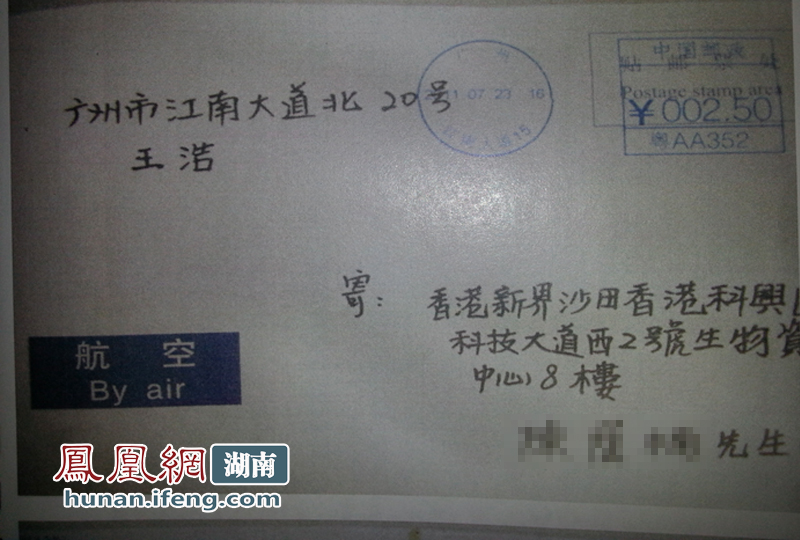 广州市江南大道北 20号
王浩
07 23 16
15
中国邮政
Postage stamp area
¥002.50
粤AA352
寄：香港新界沙田香港科興
科技大道西2號生物資
中心8樓
先生
航空
By air
鳳凰網 湖南
hunan.ifeng.com